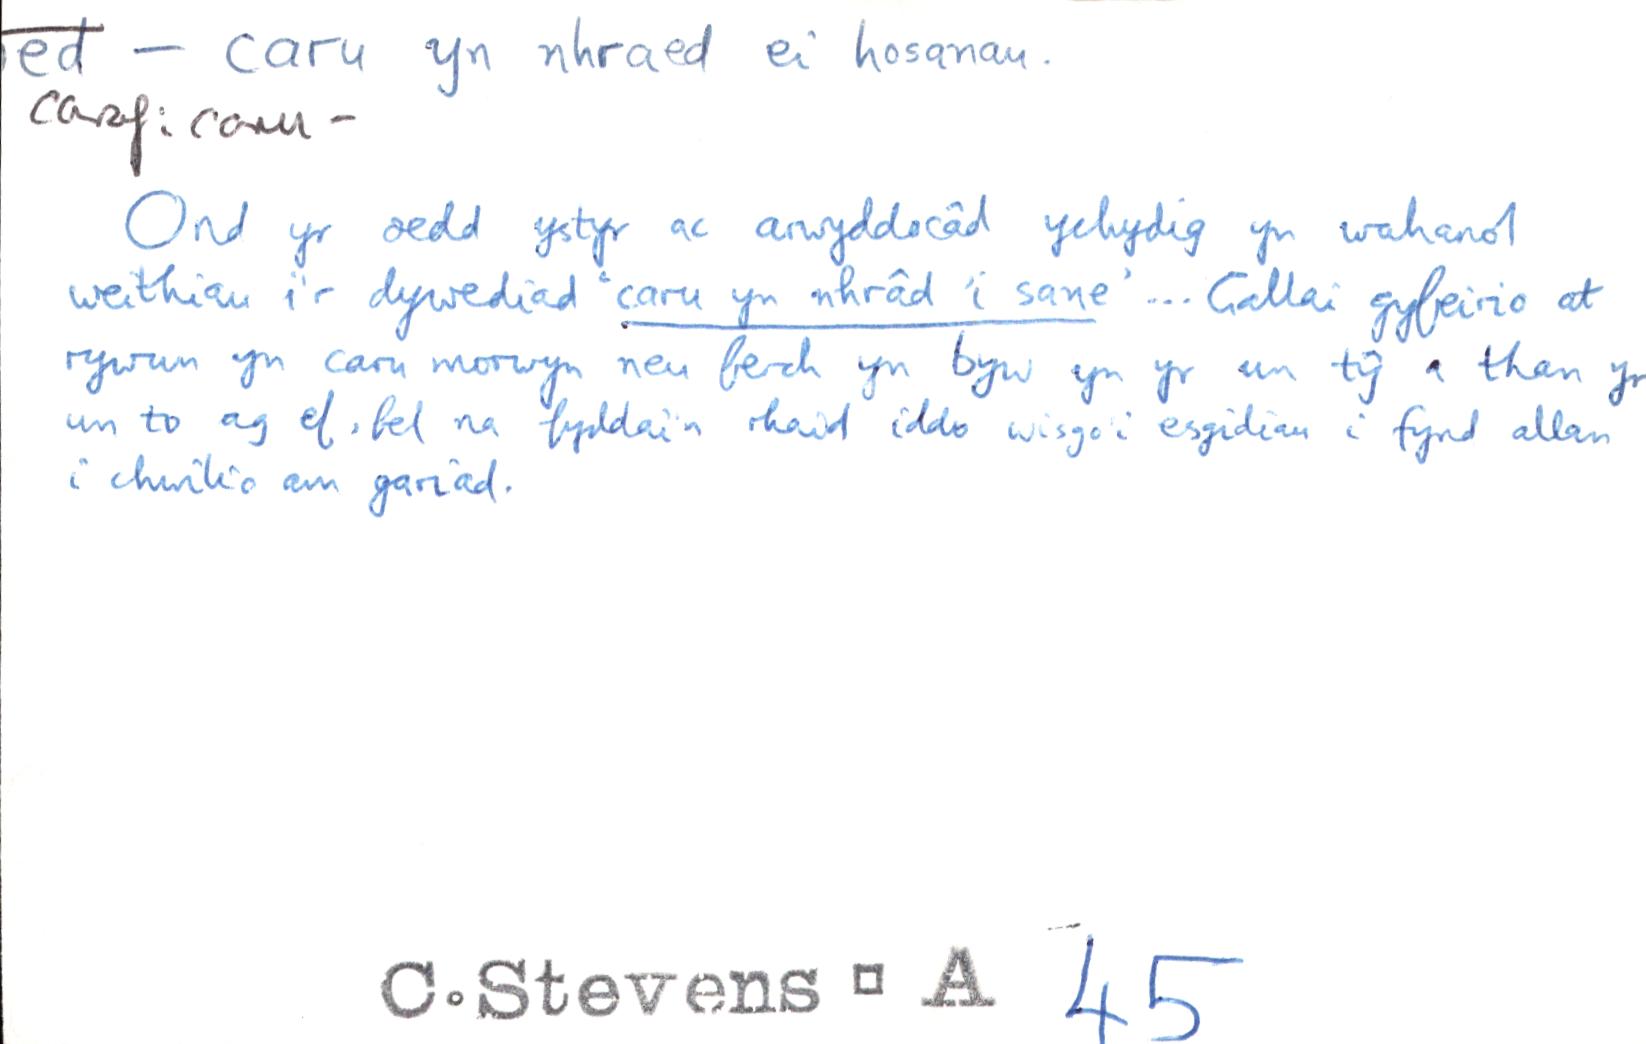 oed — caru yn nhraed ei hosanau.
carf: caru —
Ond yr oedd ystyr ac arwyddocâd ychydig yn wahanol
weithiau i'r dywediad 'caru yn nhrâd 'i sane' ... Gallai gyfeirio at
rywun yn caru morwyn neu ferch yn byw yn yr un tŷ a than yr
un to ag ef, fel na fyddai'n rhaid iddo wisgo'i esgidiau i fynd allan
i chwilio am gariad.
C.Stevens ▫ A 45